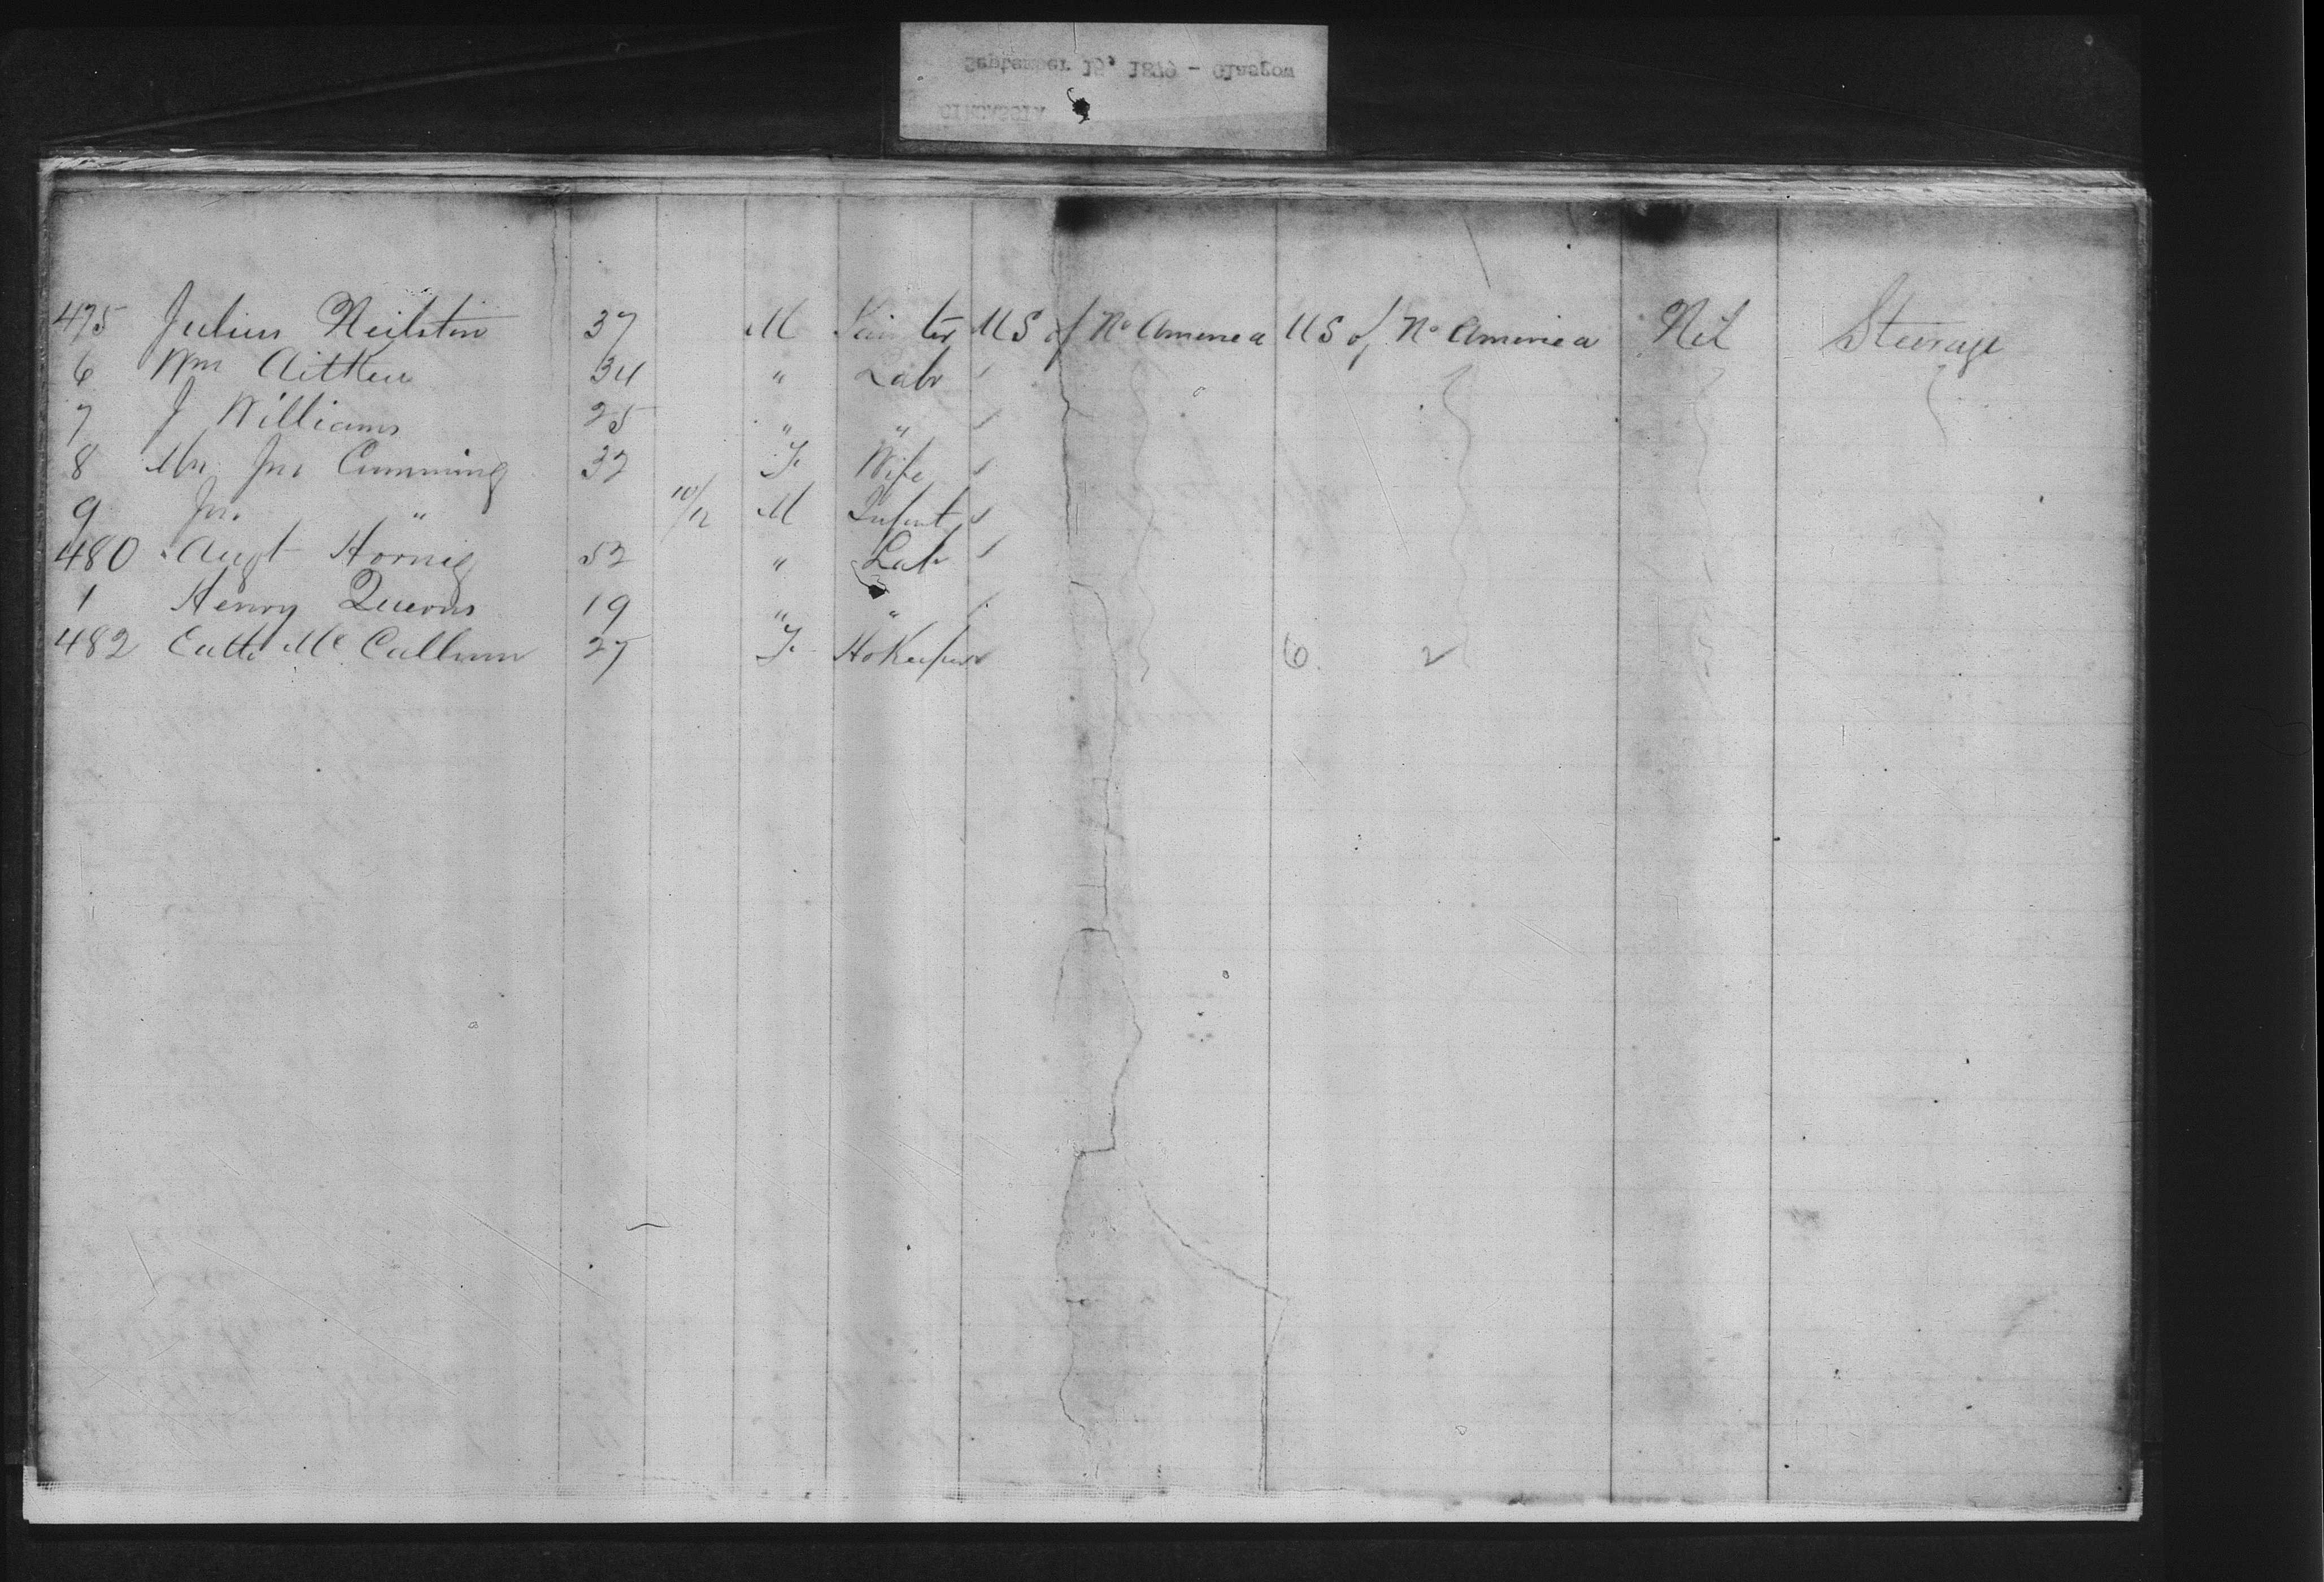 September 15, 1879 - Glasgow
CIRCASSIA
475 Julius Neilston 37 M Painter US of No America US of No America Nil Steerage
6 Wm Aitken 34 " Labr
7 J Williams 25 " "
8 Mrs Jno Cumming 32 F. Wife
9 Jno. " 10/12 M Infant
480 Augt Hornig 52 " Labr
1 Henry 19 " "
482 McCallum 27 F. HoKeeper 6. 2